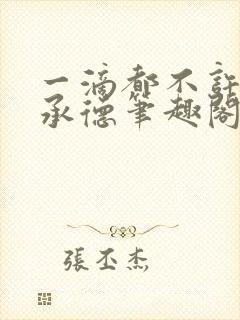 一滴都不許
承德筆趣閣
張丕杰